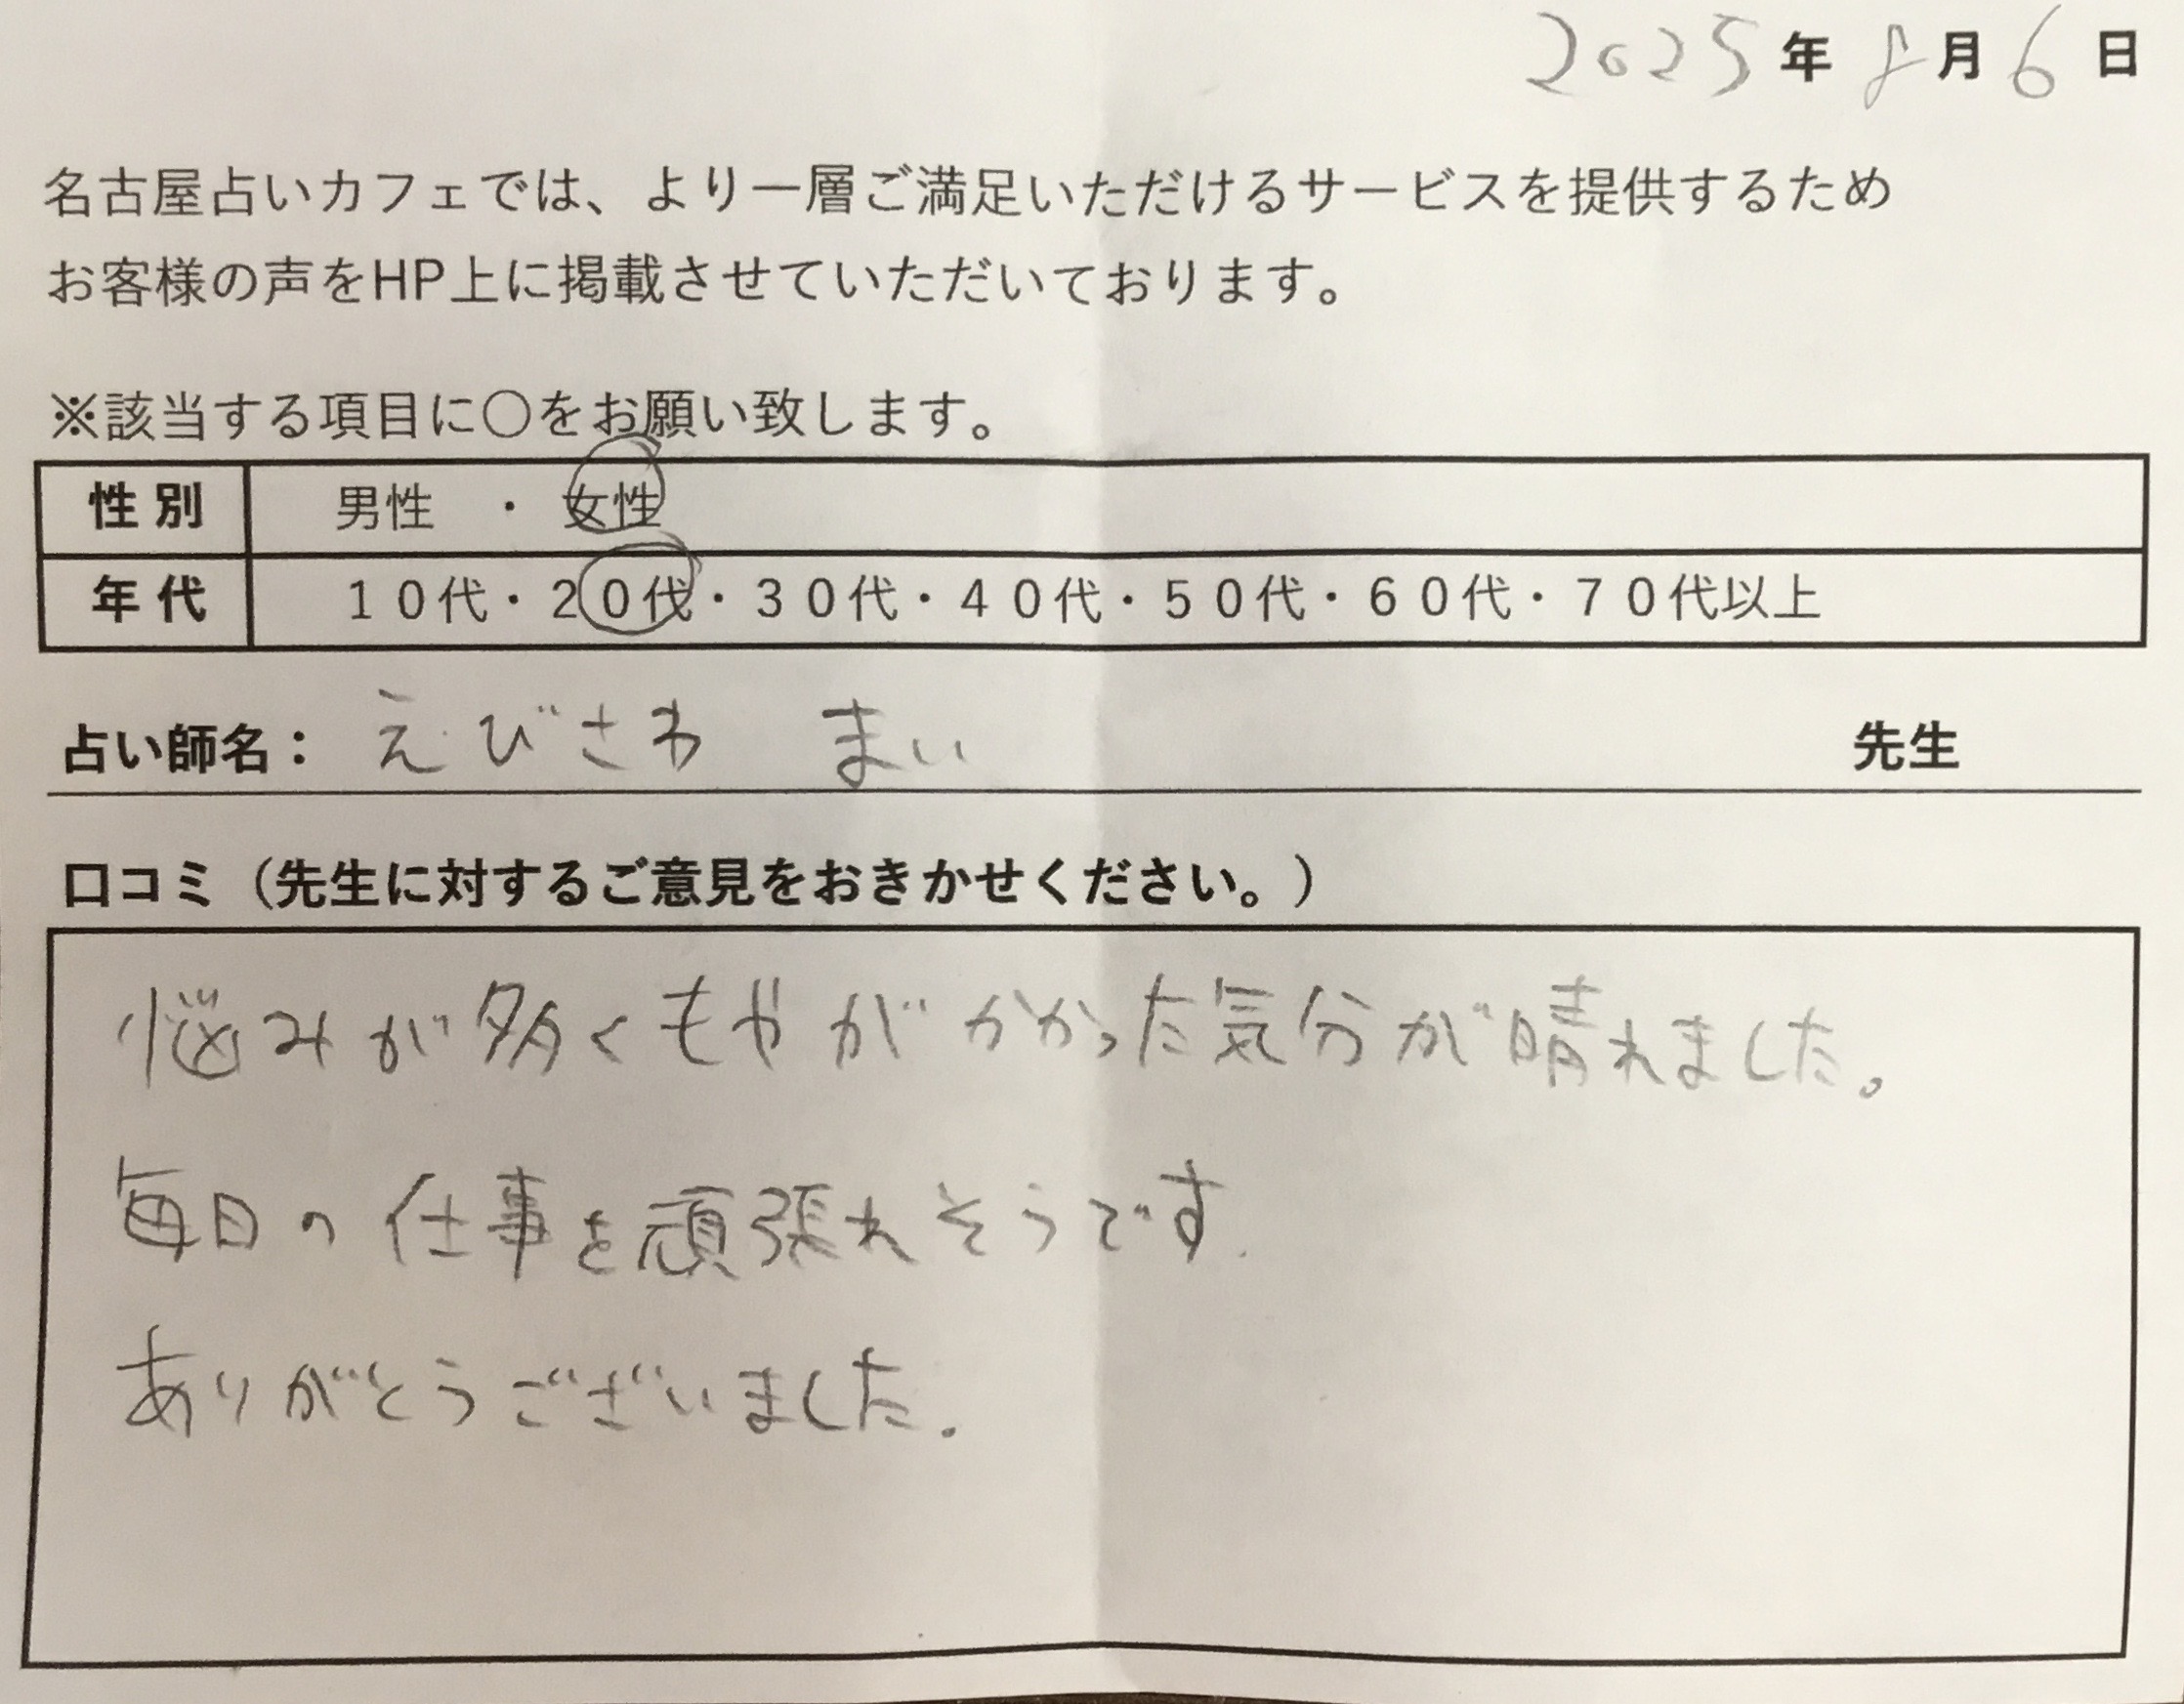 2025年8月6日
名古屋占いカフェでは、より一層ご満足いただけるサービスを提供するため
お客様の声をHP上に掲載させていただいております。
※該当する項目に〇をお願い致します。
性別 男性 ・ 女性
年代 10代・20代・30代・40代・50代・60代・70代以上
占い師名： えびさわ まい 先生
口コミ（先生に対するご意見をおきかせください。）
悩みが多くもやがかかった気分が晴れました。
毎日の仕事を頑張れそうです.
ありがとうございました.